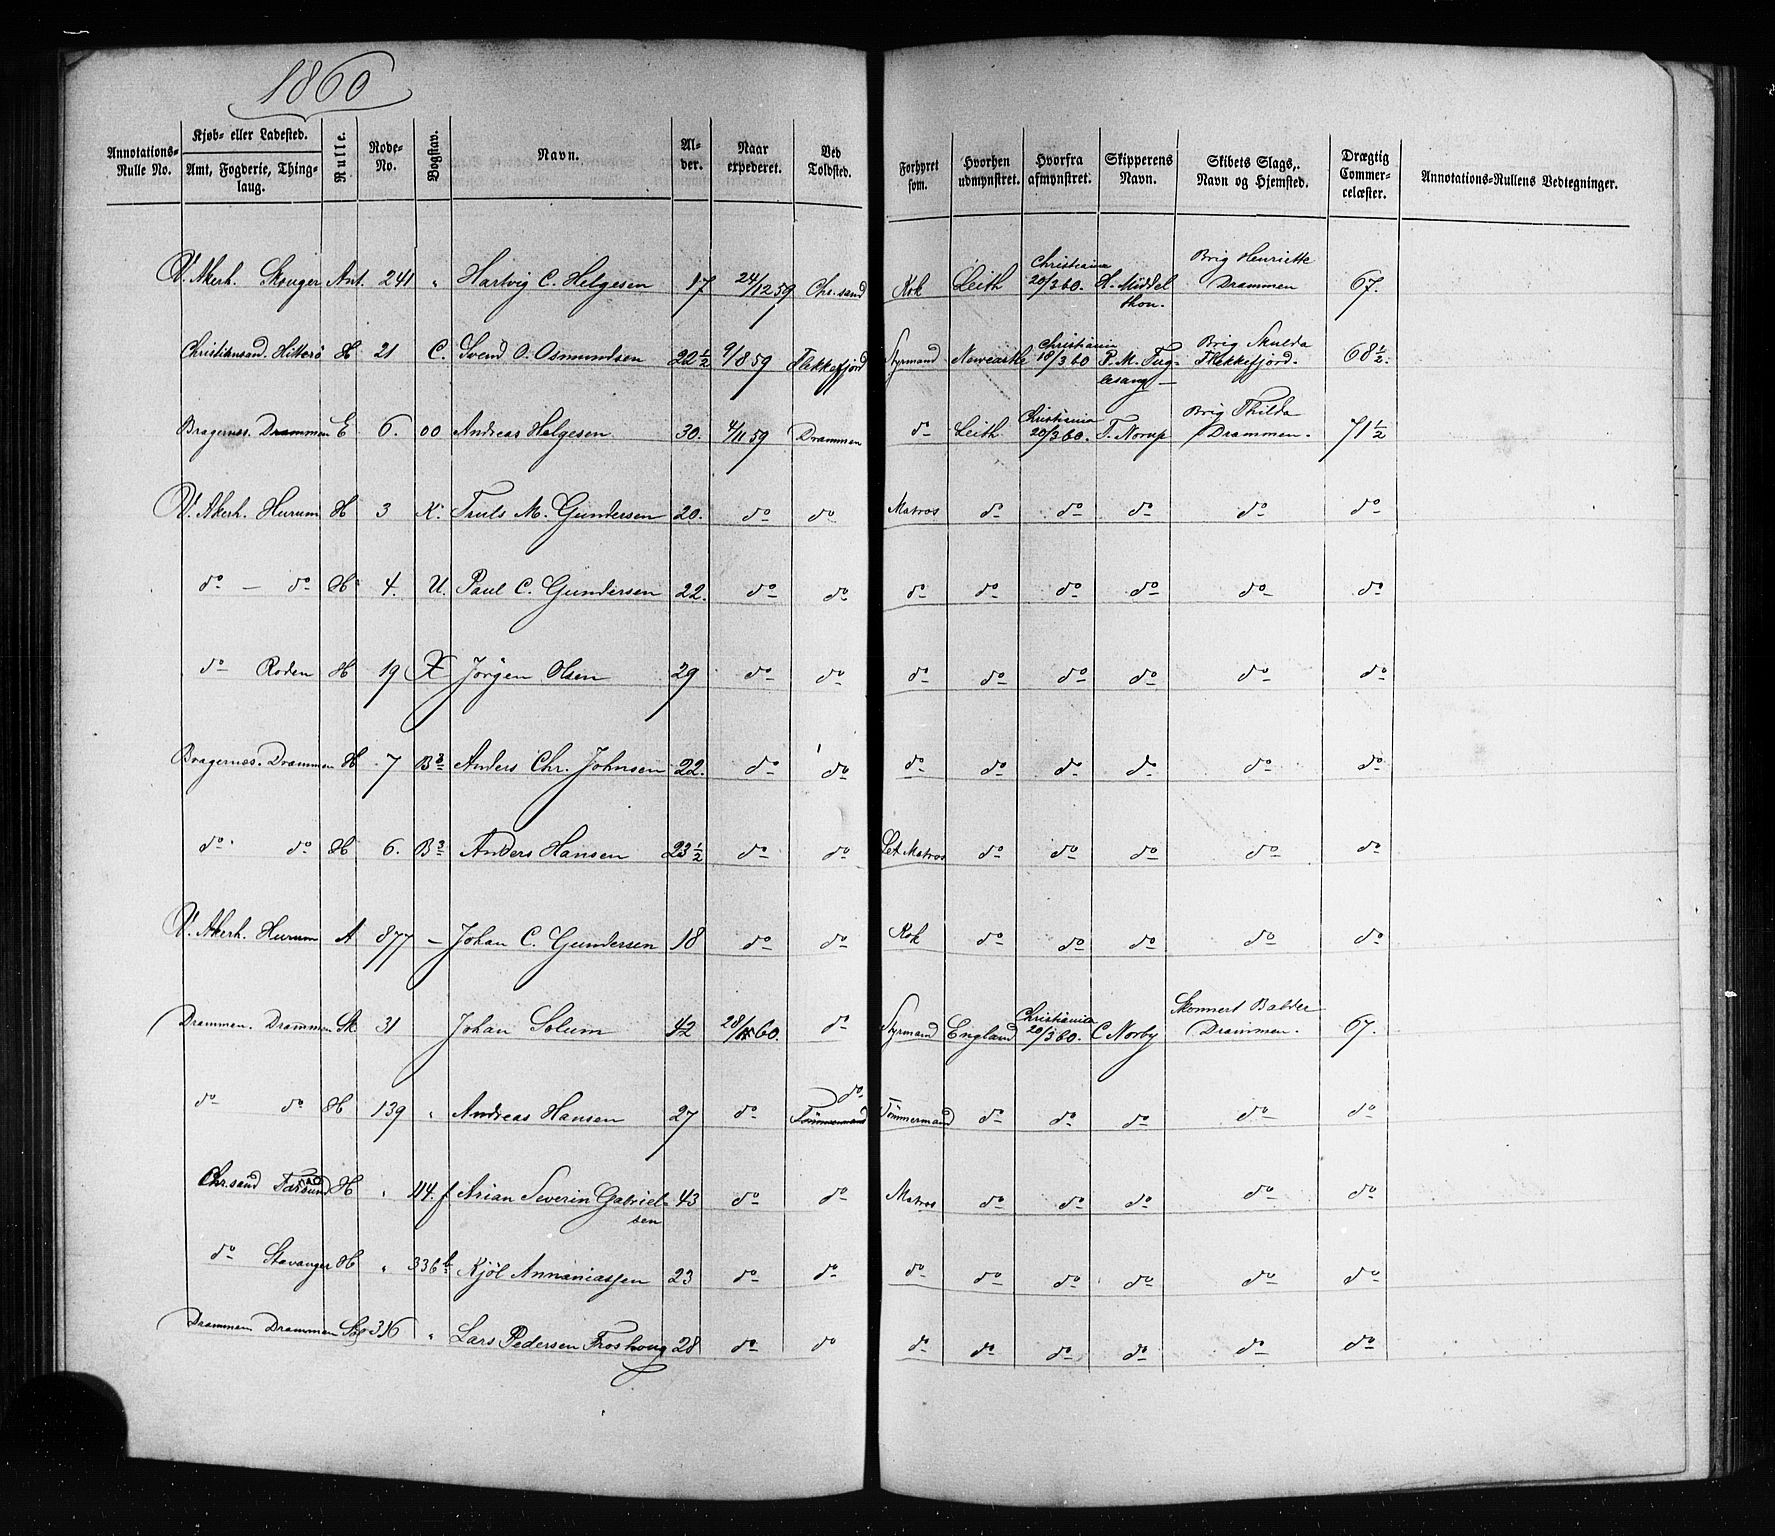 1860
Annotations-Rulle No. Kjøb- eller Ladested. Amt, Fogderie, Thinglaug. Rulle. Rode-No. Bogstav. Navn. Alder. Naar expederet. Ved Toldsted. Forhyret som. Hvorhen udmynstret. Hvorfra afmynstret. Skipperens Navn. Skibets Slags, Navn og Hjemsted. Drægtig Commercelæster. Annotations-Rullens Vedtegninger.
V. Akerh. Skouger Ant. 241 " Hartvig C. Helgesen 17 24/12 59 Chr.sand Kok Leith Christiania 20/3 60. H. Middelthon. Brig Henriette Drammen 67.
Christiansand. Hitterö H 21 C. Svend O. Osmundsen 22 1/2 9/8 59 Flekkefjord Styrmand Newcastle Christiania 18/3 60 P. M. Fuglesang Brig Skulda Flekkefjord. 68 1/2.
Bragernes. Drammen E 6. oo Andreas Helgesen 30. 4/11 59 Drammen do Leith Christiania 20/3 60. T. Norup Brig Thilda Drammen. 71 1/2
V. Akerh. Hurum H 3 K. Truls M. Gundersen 20. do do Matros do do do do do
do — do H 4. U. Paul C. Gundersen 22. do do do do do do do do
do Roden H 19 X Jörgen Olsen 29 do do do do do do do do
Bragernes. Drammen H 7 B3 Anders Chr. Johnsen 22. do do do do do do do do
do do H 6. B3 Anders Hansen 23 1/2 do do Let Matros do do do do do
V. Akerh. Hurum A 877 — Johan C. Gundersen 18 do do Kok do do do do do
Drammen. Drammen Sk 31 Johan Solum 42 28/ 60. do Styrmand England Christiania 20/3 60. C Norby Skonnert Balder Drammen. 67.
do do H 139 " Andreas Hansen 27 do do Tömmermand Tömmermand do do do do do
Chr.sand Farsund H " 114. f Arian Severin Gabrielsen 43 do do Matros do do do do do
do Stavanger H " 336 b Kjöl Annaniassen 23 do do do do do do do do
Drammen Drammen 316 " Lars Pedersen Froshoug 28 do do do do do do do do